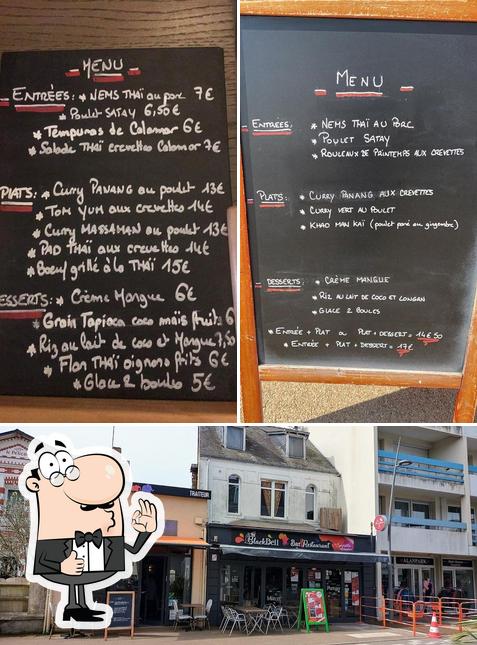 MENU
ENTRÉES: * NEMS THAÏ au porc 7€
* Poulet SATAY 6,50€
* Tempuras de Calamar 6€
* Salade THAÏ crevettes Calamar 7€
PLATS: * Curry PANANG au poulet 13€
* TOM YUM aux crevettes 14€
* Curry MASSAMAN au poulet 13€
* PAD THAÏ aux crevettes 14€
* Boeuf grillé à la THAÏ 15€
ESSERTS: * Crème Mangue 6€
* Grain Tapioca coco maïs fruits 6
* Riz au lait de coco et Mangue 7,50
* Flan THAÏ oignons frits 6€
* Glace 2 boules 5€
MENU
ENTRÉES: * NEMS THAÏ AU PORC
* POULET SATAY
* ROULEAUX DE PRINTEMPS AUX CREVETTES
PLATS: * CURRY PANANG AUX CREVETTES
* CURRY VERT AU POULET
* KHAO MAN KAÏ (poulet pané au gingembre)
DESSERTS: * CRÈME MANGUE
* RIZ AU LAIT DE COCO ET LONGAN
* GLACE 2 BOULES
* ENTRÉE + PLAT OU PLAT + DESSERT = 14€50
* ENTRÉE + PLAT + DESSERT = 17€
TRAITEUR
BlackBell Bar Restaurant